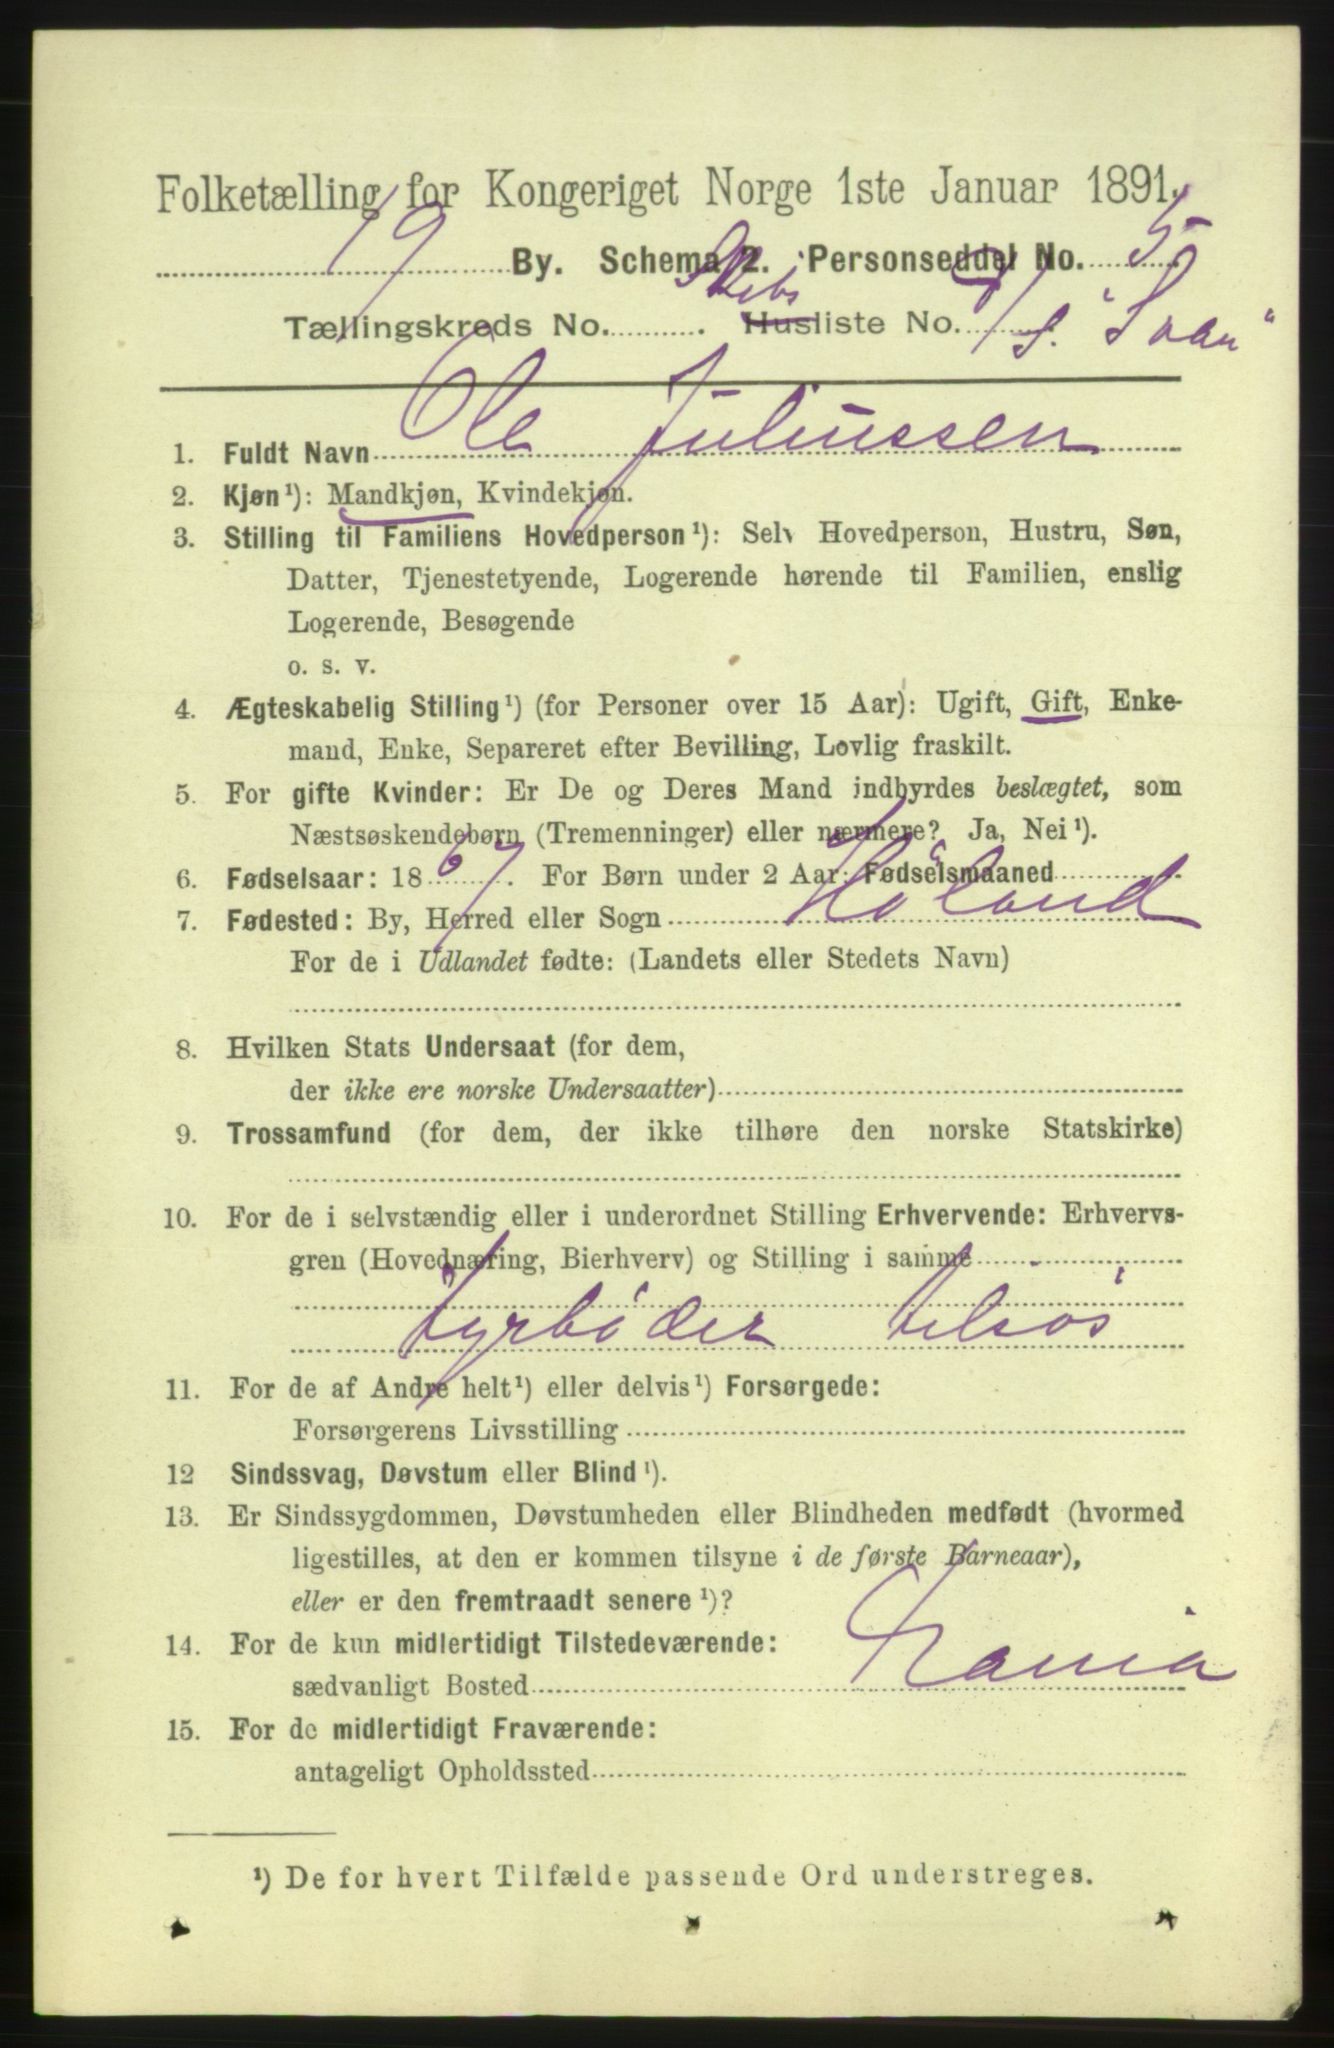 Folketælling for Kongeriget Norge 1ste Januar 1891.
19 By. Schema 2. Personseddel No. 5
Tællingskreds No. . Skibs Husliste No. D/S. "Svan"
1. Fuldt Navn Ole Juliussen
2. Kjøn¹): Mandkjøn, Kvindekjøn.
3. Stilling til Familiens Hovedperson¹): Selv Hovedperson, Hustru, Søn,
Datter, Tjenestetyende, Logerende hørende til Familien, enslig
Logerende, Besøgende
o. s. v.
4. Ægteskabelig Stilling¹) (for Personer over 15 Aar): Ugift, Gift, Enke-
mand, Enke, Separeret efter Bevilling, Lovlig fraskilt.
5. For gifte Kvinder: Er De og Deres Mand indbyrdes beslægtet, som
Næstsøskendebørn (Tremenninger) eller nærmere? Ja, Nei¹).
6. Fødselsaar: 1867. For Børn under 2 Aar: Fødselsmaaned
7. Fødested: By, Herred eller Sogn Høland
For de i Udlandet fødte: (Landets eller Stedets Navn)
8. Hvilken Stats Undersaat (for dem,
der ikke ere norske Undersaatter)
9. Trossamfund (for dem, der ikke tilhøre den norske Statskirke)
10. For de i selvstændig eller i underordnet Stilling Erhvervende: Erhvervs-
gren (Hovednæring, Bierhverv) og Stilling i samme
fyrbøder tilsøs
11. For de af Andre helt¹) eller delvis¹) Forsørgede:
Forsørgerens Livsstilling
12 Sindssvag, Døvstum eller Blind¹).
13. Er Sindssygdommen, Døvstumheden eller Blindheden medfødt (hvormed
ligestilles, at den er kommen tilsyne i de første Barneaar),
eller er den fremtraadt senere¹)?
14. For de kun midlertidigt Tilstedeværende:
sædvanligt Bosted
15. For de midlertidigt Fraværende:
antageligt Opholdssted
¹) De for hvert Tilfælde passende Ord understreges.